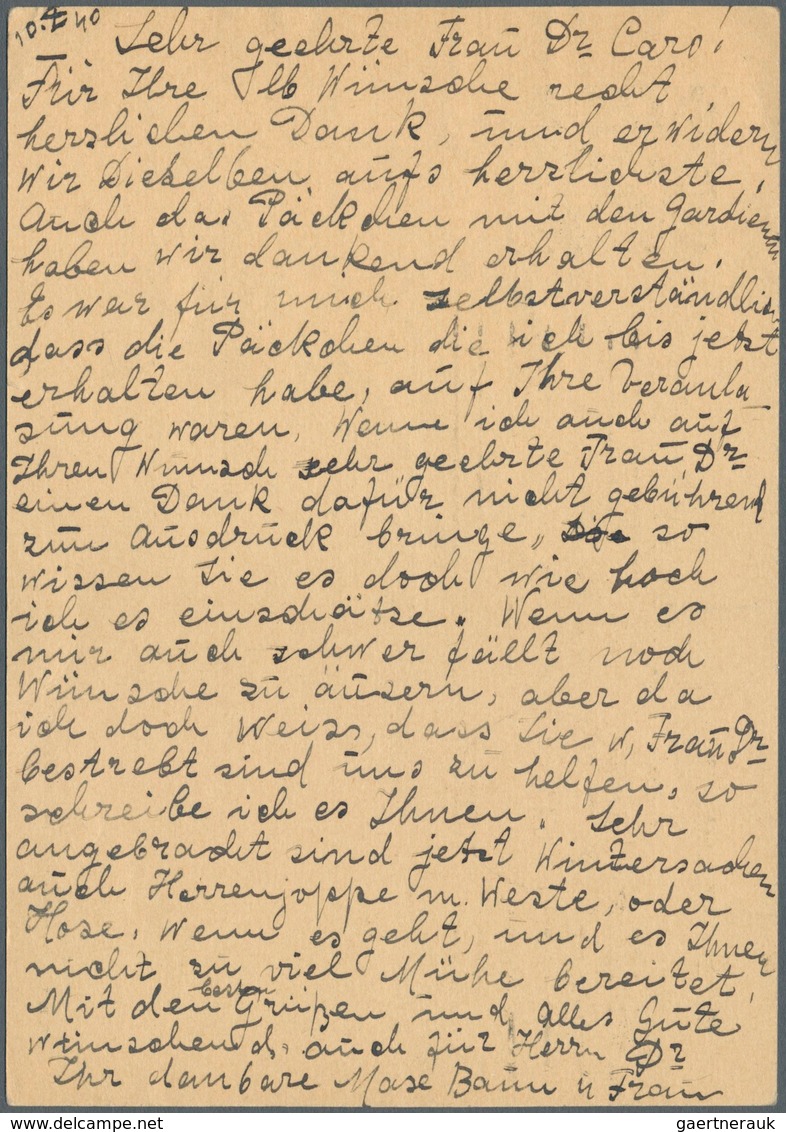 10. X 40
Sehr geehrte Frau Dr Caro!
Für Ihre lb Wünsche recht
herzlichen Dank, und erwidern
wir Dieselben aufs herzlichste,
Auch das Päckchen mit den Gardienen
haben wir dankend erhalten.
Es war für mich selbstverständlich
dass die Päckchen die ich bis jetzt
erhalten habe, auf Ihre Veranla
sung waren, Wenn ich auch auf
Ihren Wunsch sehr geehrte Frau Dr
einen Dank dafür nicht gebührend
zum Ausdruck bringe, so
wissen Sie es doch wie hoch
ich es einschätse. Wenn es
mir auch schwer fällt noch
Wünsche zu äusern, aber da
ich doch Weiss, dass Sie w, Frau Dr
bestrebt sind uns zu helfen, so
schreibe ich es Ihnen. Sehr
angebracht sind jetzt Wintersachen
auch Herrenjoppe m. Weste, oder
Hose, Wenn es geht, und es Ihnen
nicht zu viel Mühe bereitet,
Mit den besten Grüßen und alles Gute
wünschend, auch für Herrn Dr
Ihr dankbare Baum u Frau
gaertnerauk